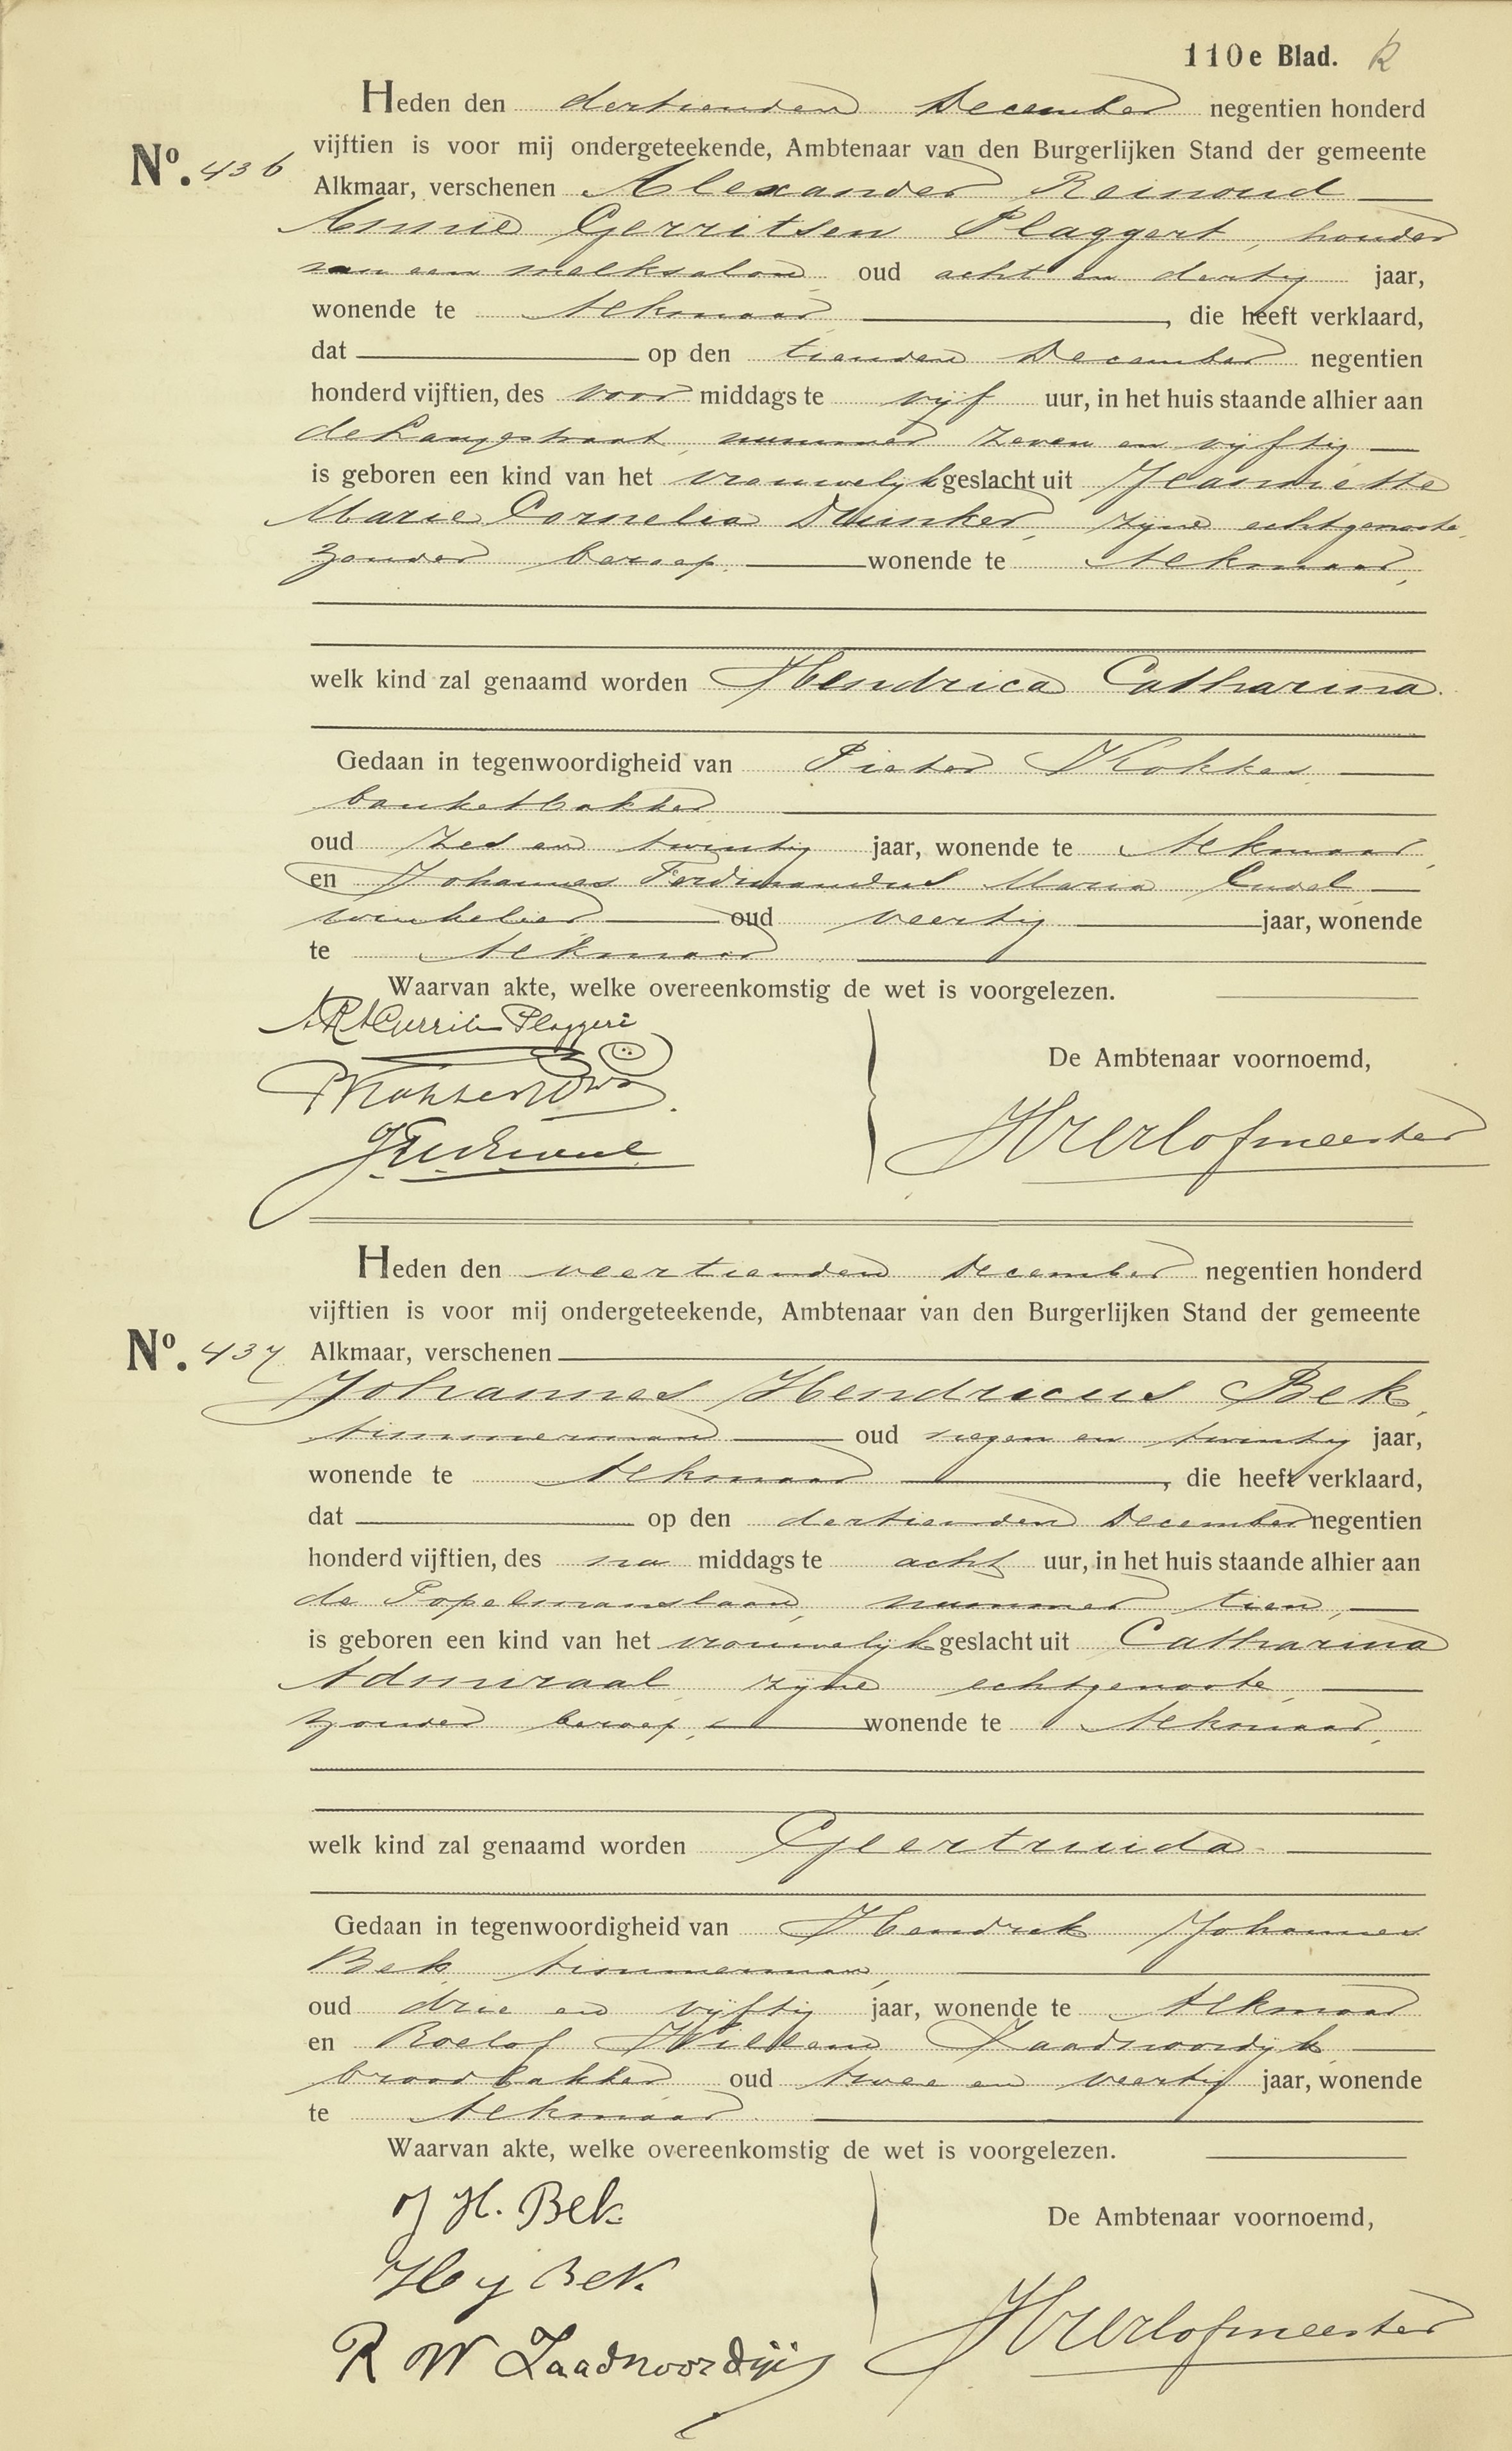 110e Blad. R
Heden den dertienden December negentien honderd
vijftien is voor mij ondergeteekende, Ambtenaar van den Burgerlijken Stand der gemeente
No. 436
Alkmaar, verschenen Alexander Reinoud
Annie Gerritsen Plaggert, houder
van een melksalon oud acht en dertig jaar,
wonende te Alkmaar, die heeft verklaard,
dat op den tienden December negentien
honderd vijftien, des voor middags te vijf uur, in het huis staande alhier aan
de Langestraat, nummer zeven en vijftig
is geboren een kind van het vrouwelijk geslacht uit Jeannette
Marie Cornelia Duinker, zijne echtgenoote,
zonder beroep, wonende te Alkmaar,
welk kind zal genaamd worden Hendrica Catharina.
Gedaan in tegenwoordigheid van Pieter Kokkes
banketbakker
oud zes en twintig jaar, wonende te Alkmaar,
en Johannes Ferdinandus Maria
winkelier oud veertig jaar, wonende
te Alkmaar
Waarvan akte, welke overeenkomstig de wet is voorgelezen.
ARAGerritsen Plaggert
De Ambtenaar voornoemd,
Heden den veertienden December negentien honderd
vijftien is voor mij ondergeteekende, Ambtenaar van den Burgerlijken Stand der gemeente
No. 437
Alkmaar, verschenen
Johannes Hendricus Bek,
timmerman oud negen en twintig jaar,
wonende te Alkmaar, die heeft verklaard,
dat op den dertienden December negentien
honderd vijftien, des na middags te acht uur, in het huis staande alhier aan
de Popelmanslaan, nummer tien,
is geboren een kind van het vrouwelijk geslacht uit Catharina
Admiraal, zijne echtgenoote,
zonder beroep, wonende te Alkmaar,
welk kind zal genaamd worden Geertruida
Gedaan in tegenwoordigheid van Hendrik Johannes
Bek, timmerman,
oud drie en vijftig jaar, wonende te Alkmaar
en Roelof Willem Zaadnoordijk,
broodbakker oud twee en veertig jaar, wonende
te Alkmaar
Waarvan akte, welke overeenkomstig de wet is voorgelezen.
J H. Bek
De Ambtenaar voornoemd,
H J Bek.
R W Zaadnoordijk